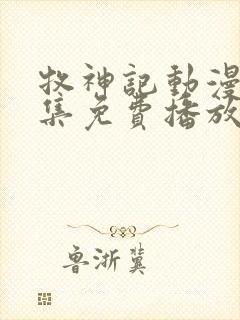 牧神記動漫
集免費播放
魯浙冀